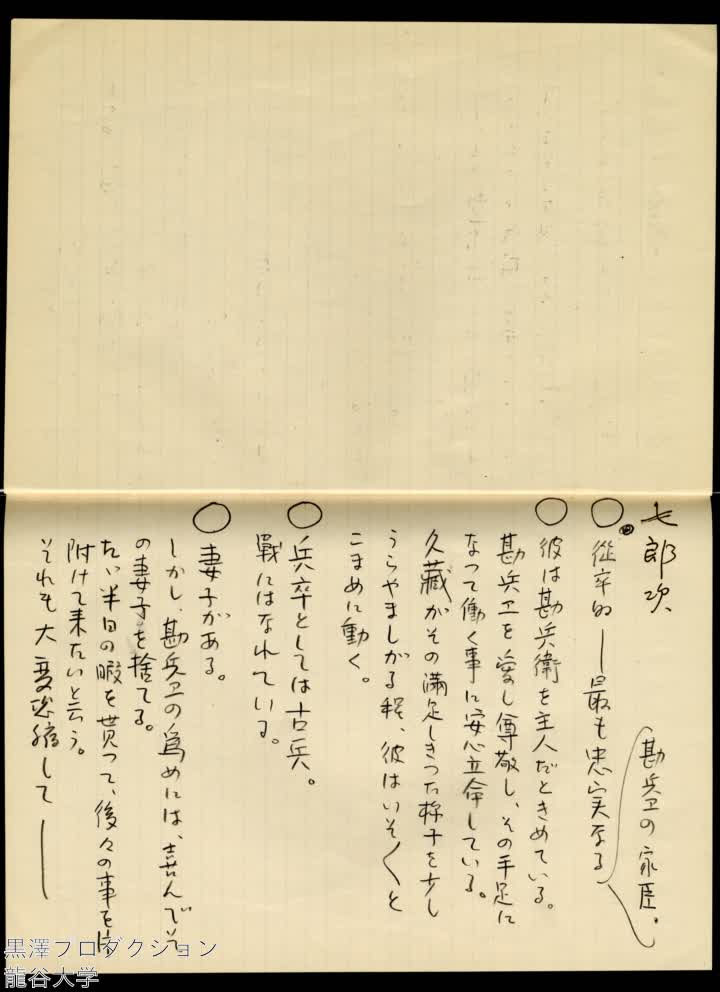 七郎次
勘兵卫の家臣。
○従卒的―最も忠実なる
○彼は勘兵衛を主人だときめている。
勘兵卫を愛し尊敬し、その手足に
なって働く事に安心立命している。
久藏がその満足しきった様子を少し
うらやましがる程、彼はいそ〱と
こまめに動く。
○兵卒としては古兵。
戰にはなれている。
○妻子がある。
しかし、勘兵卫の為めには、喜んでそ
の妻子を捨てる。
たゞ半日の暇を貰って、後々の事を片
附けて来たいと云う。
それも大変恐縮して―
黒澤プロダクション
龍谷大学